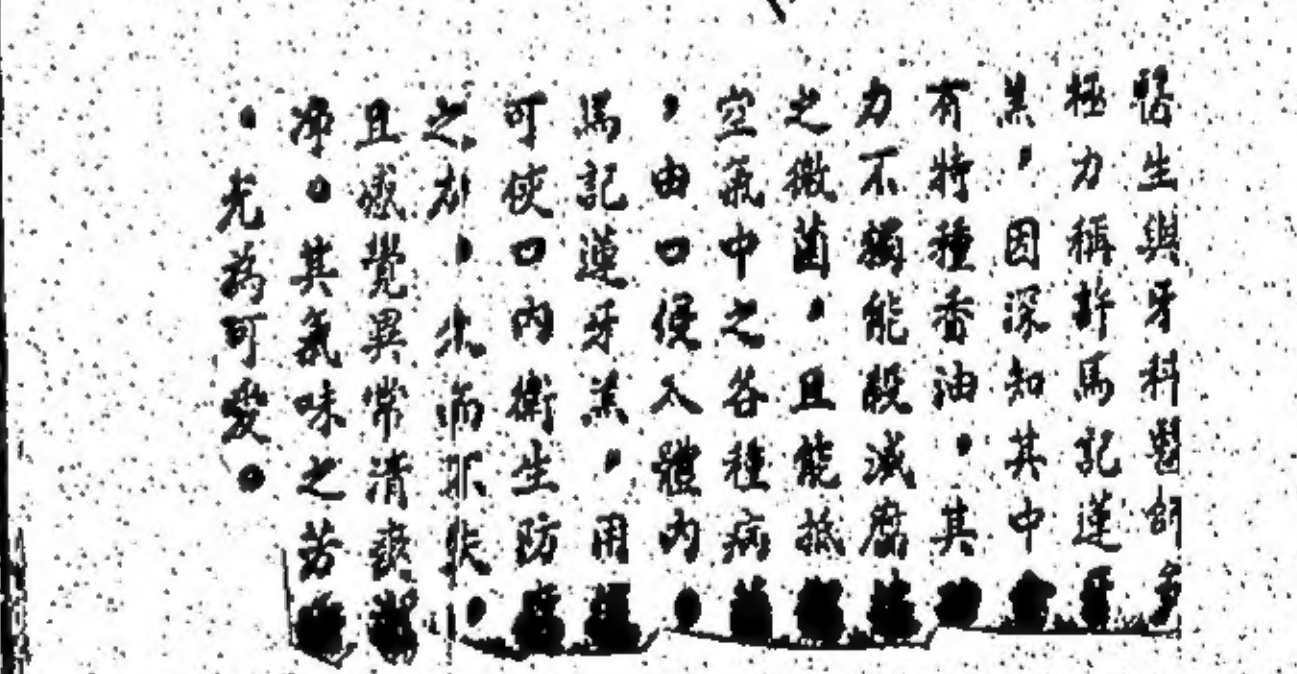 醫生與牙科醫師多
極力稱許馬記蓮牙
羔,因深知其中含
有特種香油,其
力不獨能殺滅腐
之微菌,且能抵
空氣中之各種病菌
,由口侵入體內,
馬記蓮牙羔,用
可使口內衛生防
之力,久而不失,
且感覺異常清爽潔
淨。其氣味之芳
,尤為可愛。